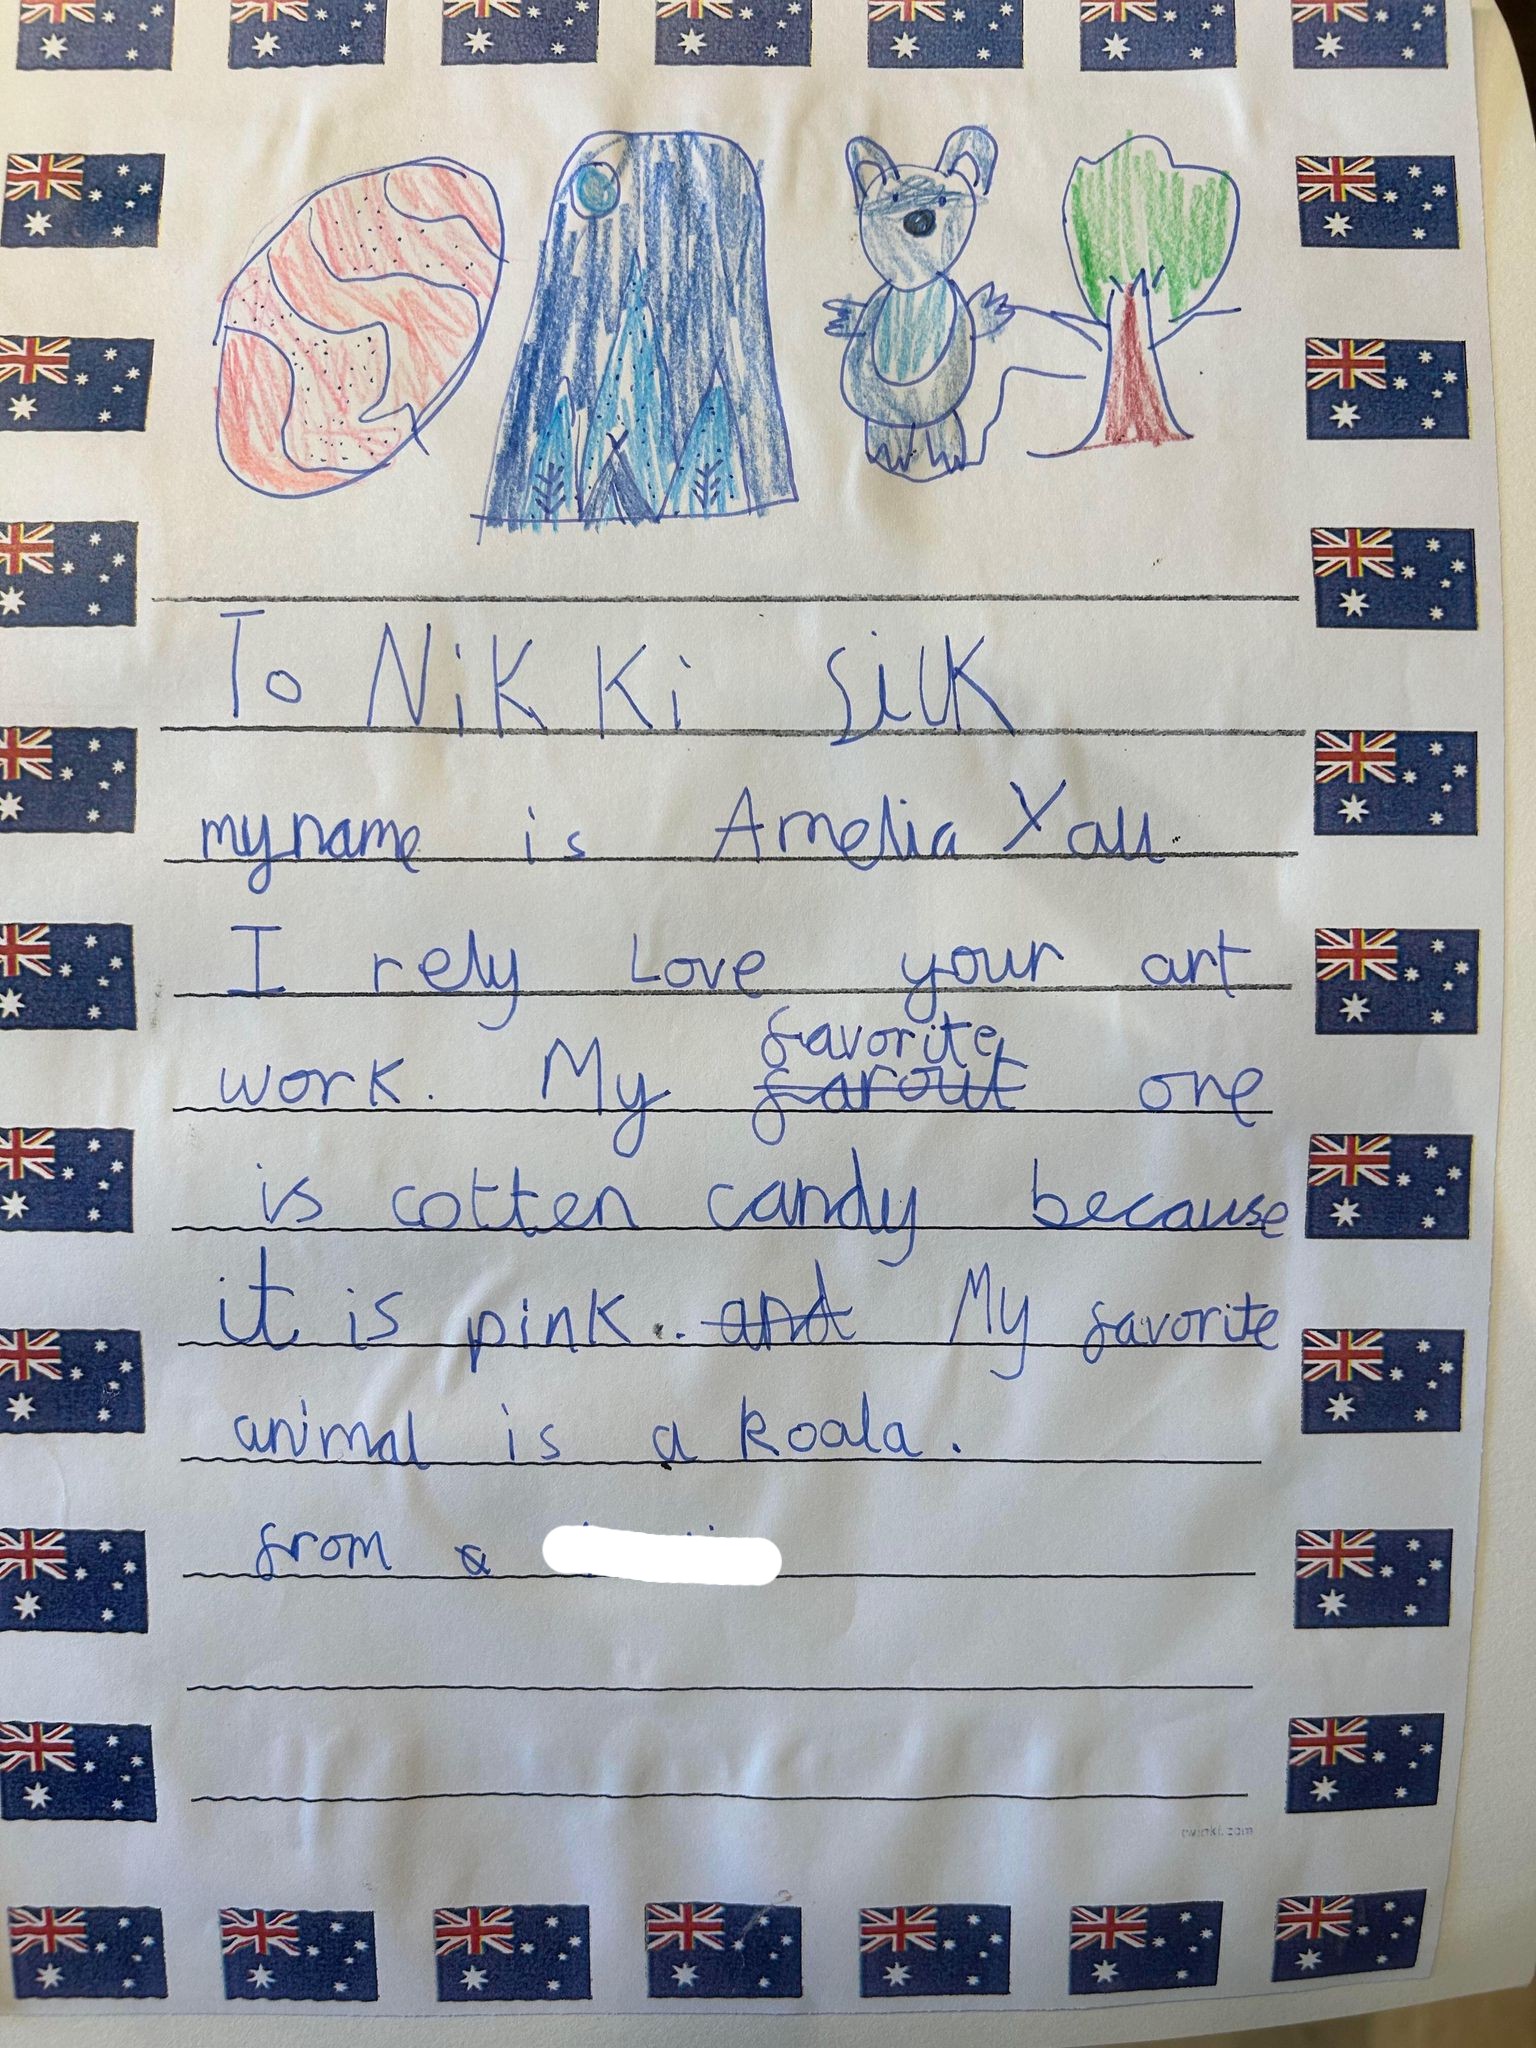 To Nikki Silk
my name is Amelia Yau.
I rely Love your art
favorite
work. My farout one
is cotten candy because
it is pink. and My favorite
animal is a koala.
from a
twinkl.com